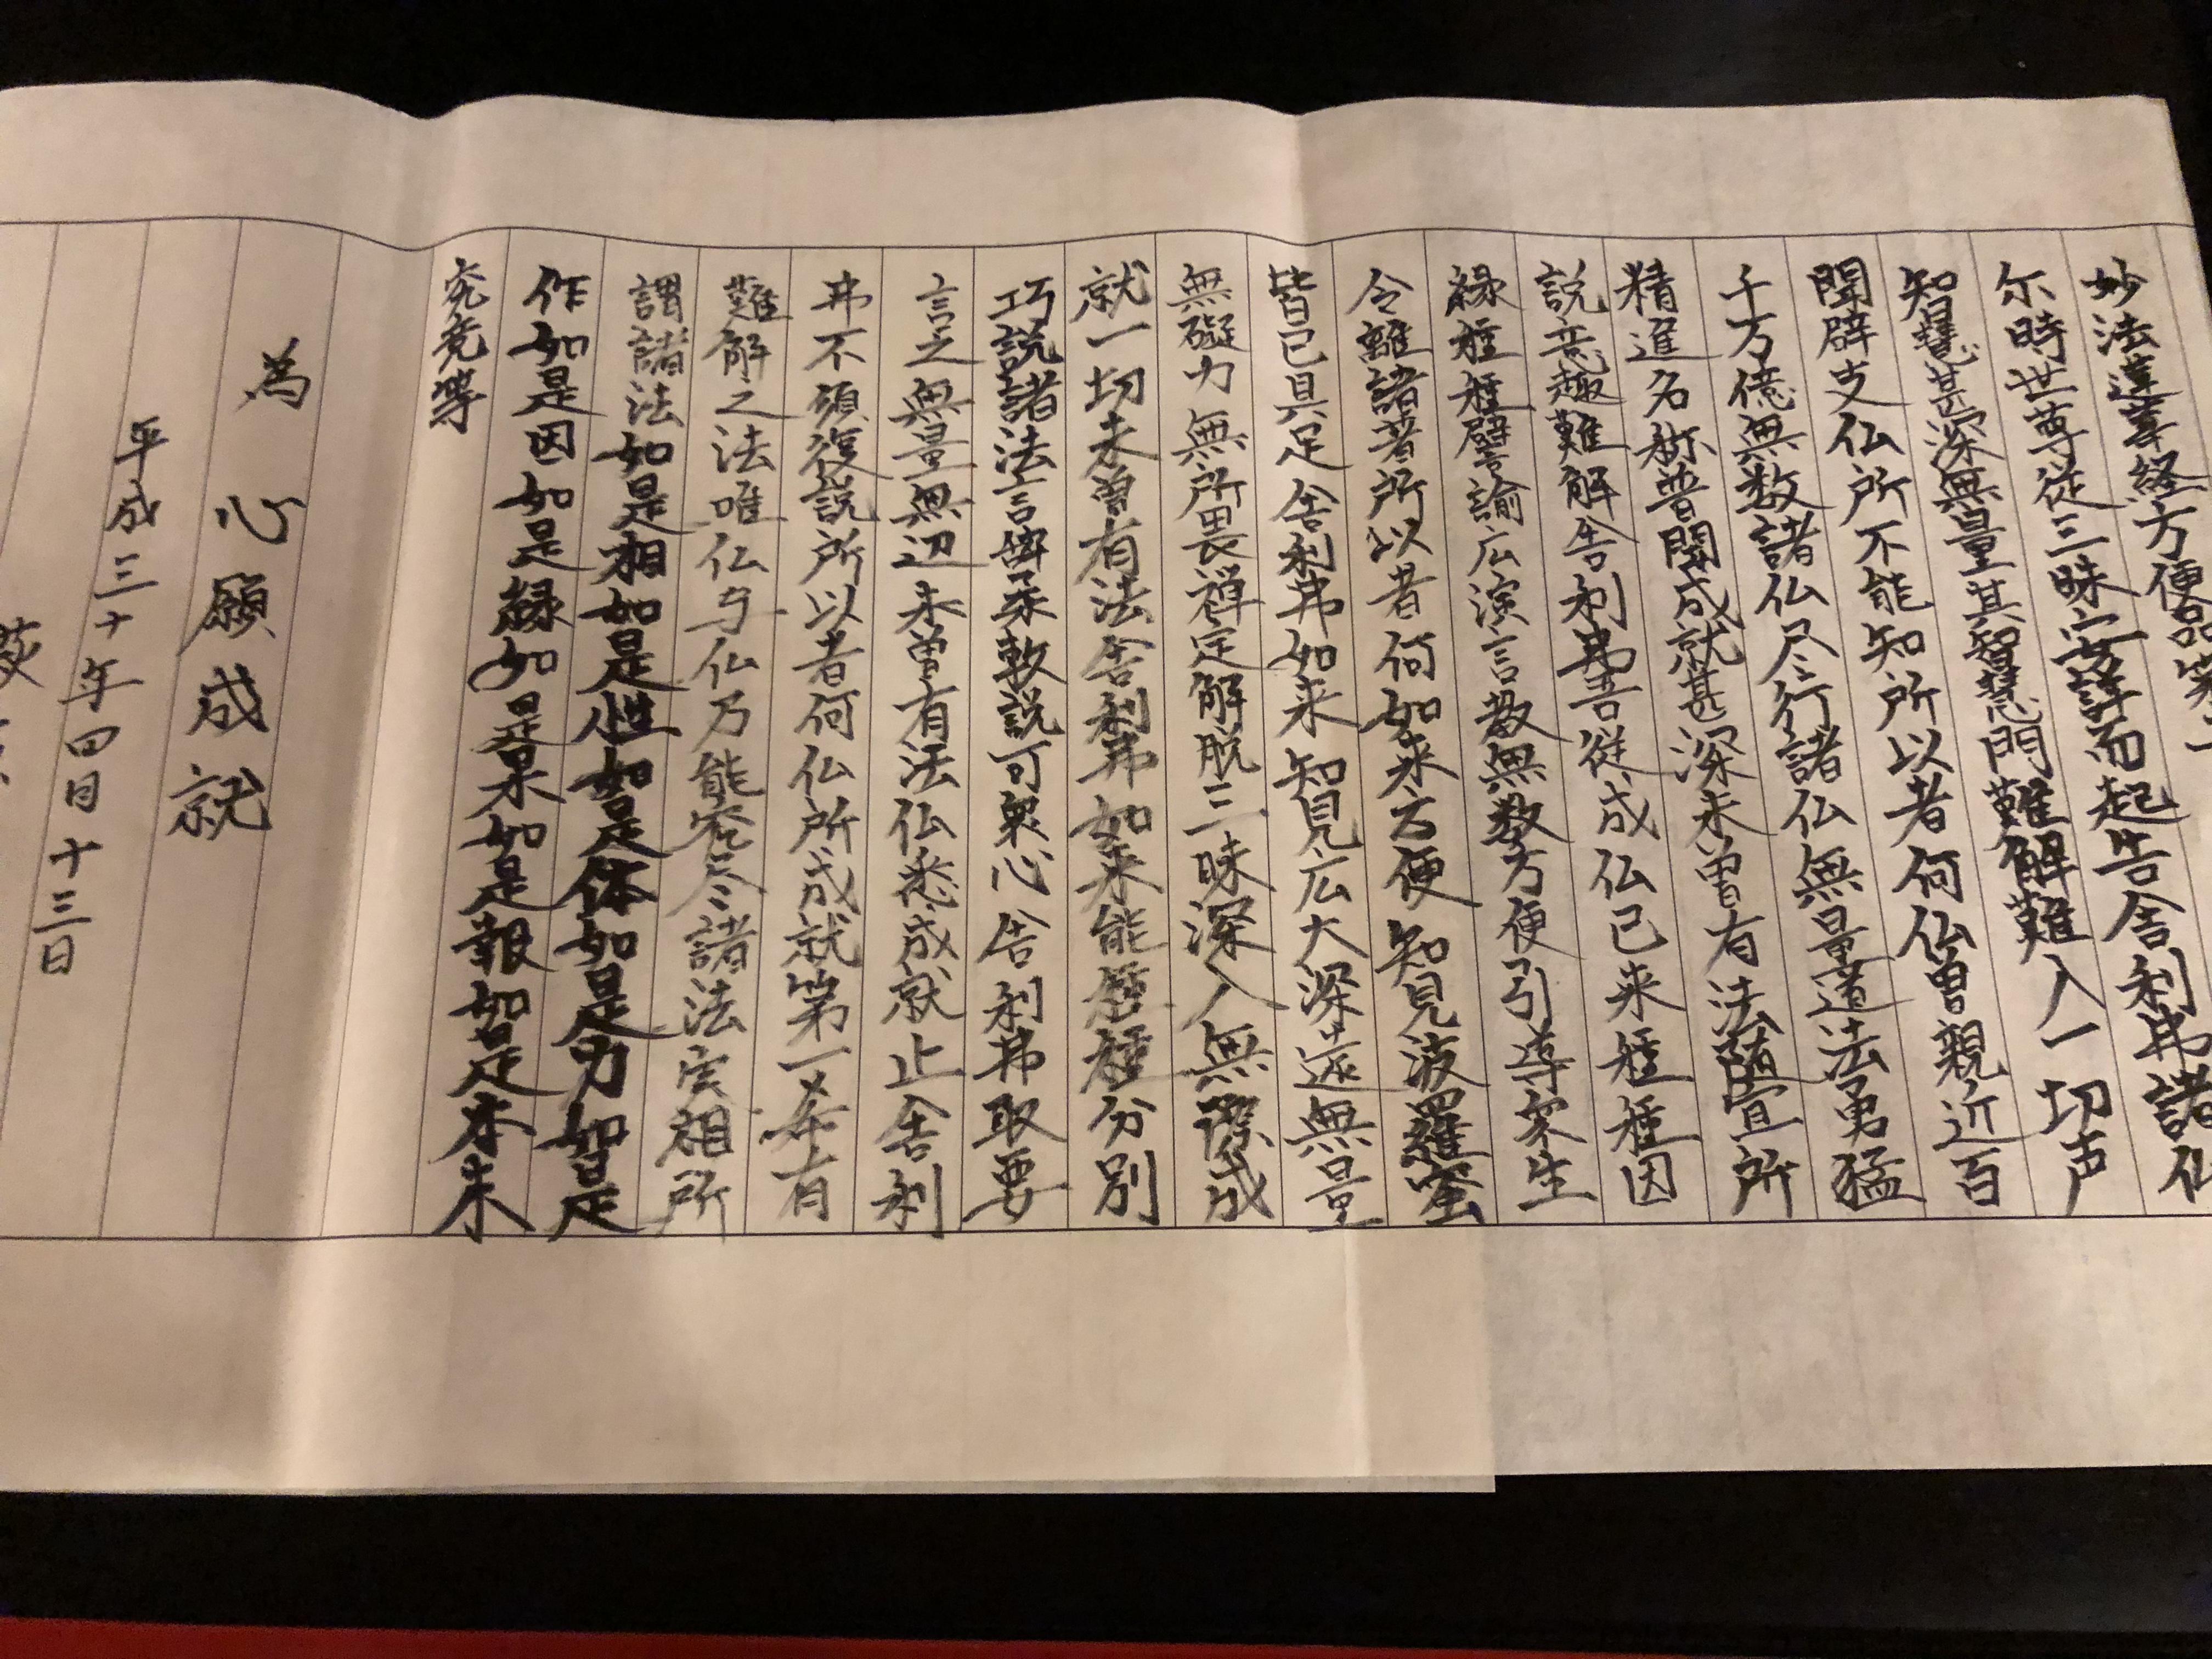 妙法蓮華経方便品第二
尓時世尊従三昧安詳而起告舎利弗諸仏
知慧甚深無量其智慧門難解難入一切声
聞辟支仏所不能知所以者何仏曽親近百
千万億無数諸仏尽行諸仏無量道法勇猛
精進名称普聞成就甚深未曽有法随宜所
説意趣難解舎利弗吾従成仏已来種種因
縁種種譬諭広演言教無数方便引導衆生
令離諸著所以者何如来方便知見波羅蜜
皆已具足舎利弗如来知見広大深遠無量
無礙力無所畏禅定解脱三昧深入無際成
就一切未曽有法舎利弗如来能種種分別
巧説諸法言辞柔軟説可衆心舎利弗取要
言之無量無辺未曽有法仏悉成就止舎利
弗不須復説所以者何仏所成就第一希有
難解之法唯仏与仏乃能究尽諸法実相所
謂諸法如是相如是性如是体如是力如是
作如是因如是縁如是果如是報如是本末
究竟等
為 心願成就
平成三十年四月十三日